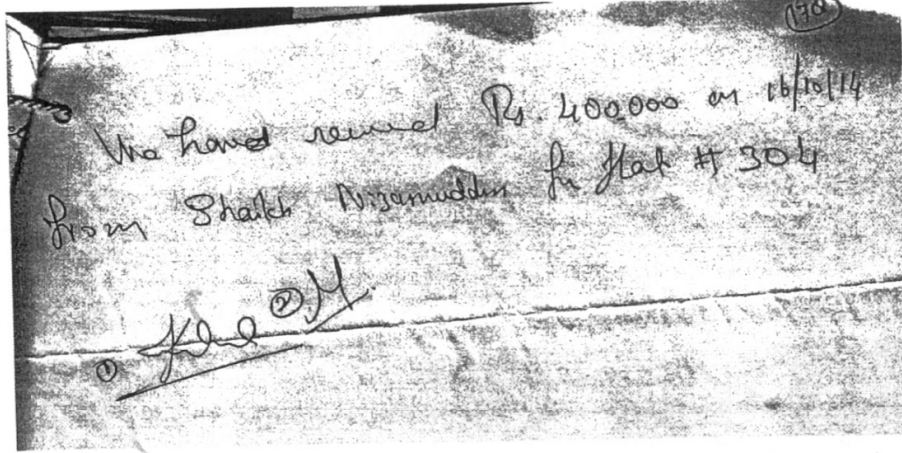 170
We haved received Rs. 400,000 on 16/10/14
from Shaikh Nizamuddin for flat # 304
① ②